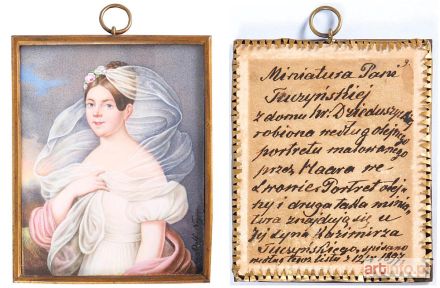 Miniatura Pani
Turzyńskiej
z domu hr. Dzieduszyckiej
robiona według olejnego
portretu malowanego
przez Maera we
Lwowie. Portret olej-
ny i druga taka minia-
tura znajdują się u
Kazimierza
Turzyńskiego, spisano
według listu z 12/IX 1897
artinfo.pl